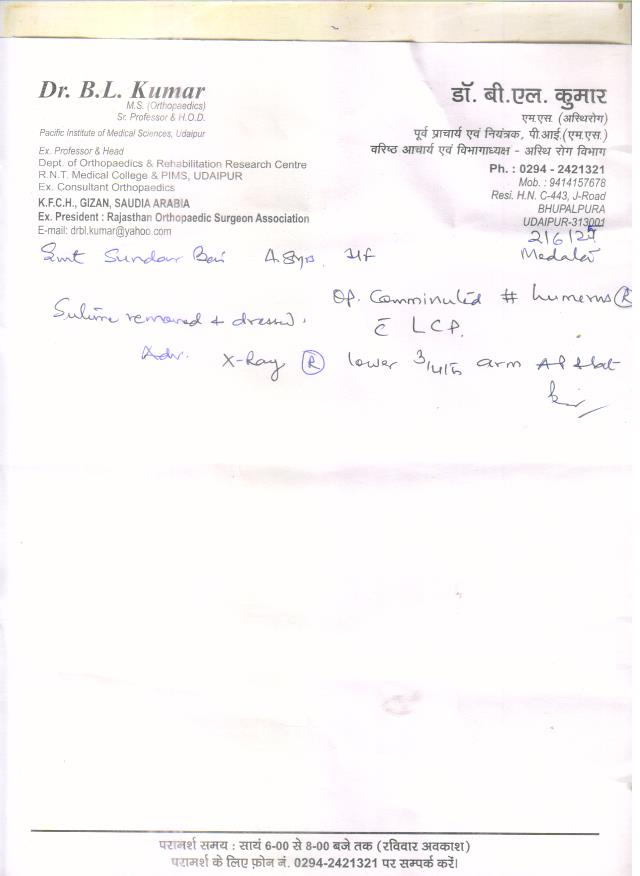 Dr. B.L. Kumar
M.S. (Orthopaedics)
Sr. Professor & H.O.D.
Pacific Institute of Medical Sciences, Udaipur
Ex. Professor & Head
Dept. of Orthopaedics & Rehabilitation Research Centre
R.N.T. Medical College & PIMS, UDAIPUR
Ex. Consultant Orthopaedics
K.F.C.H., GIZAN, SAUDIA ARABIA
Ex. President : Rajasthan Orthopaedic Surgeon Association
E-mail: drbl.kumar@yahoo.com
डॉ. बी.एल. कुमार
एम.एस. (अस्थिरोग)
पूर्व प्राचार्य एवं नियंत्रक, पी.आई.(एम.एस.)
वरिष्ठ आचार्य एवं विभागाध्यक्ष - अस्थि रोग विभाग
Ph. : 0294 - 2421321
Mob. : 9414157678
Resi. H.N. C-443, J-Road
BHUPALPURA
UDAIPUR-313001
2/6/25
Smt Sundar Bai
Op. Comminuted # humerus (R)
c̄ LCP.
Suture removed & dressed.
Adv. X-Ray (R) lower 3/4th arm AP & lat
परामर्श समय : सायं 6-00 से 8-00 बजे तक (रविवार अवकाश)
परामर्श के लिए फ़ोन नं. 0294-2421321 पर सम्पर्क करें।